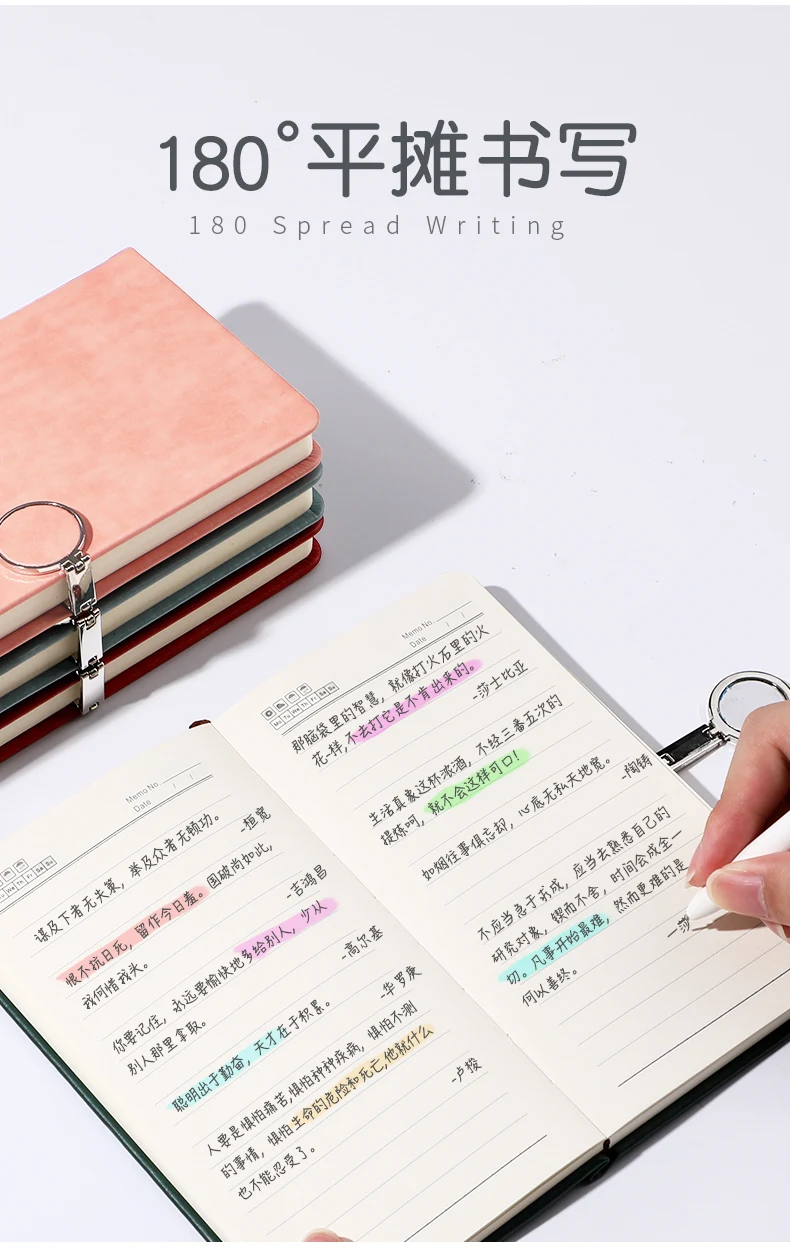 180°平摊书写
180 Spread Writing
Memo No.
Date / /
Mo Tu We Th Fr Sa Su
谋及下者无失策，举及众者无顿功。
-桓宽
恨不抗日死，留作今日羞。国破尚如此，
我何惜我头。
-吉鸿昌
你要记住，永远要愉快地多给别人，少从
别人那里拿取。
-高尔基
聪明出于勤奋，天才在于积累。
-华罗庚
人要是惧怕痛苦,惧怕种种疾病，惧怕不测
的事情，惧怕生命的危险和死亡,他就什么
也不能忍受了。
-卢梭
Memo No.
Date / /
Mo Tu We Th Fr Sa Su
那脑袋里的智慧，就像打火石里的火
花一样,不去打它是不肯出来的。
-莎士比亚
生活真象这杯浓酒，不经三番五次的
提炼呵，就不会这样可口！
如烟往事俱忘却，心底无私天地宽。
-陶铸
不应当急于求成，应当去熟悉自己的
研究对象，锲而不舍，时间会成全一
切。凡事开始最难，然而更难的是
何以善终。
-莎